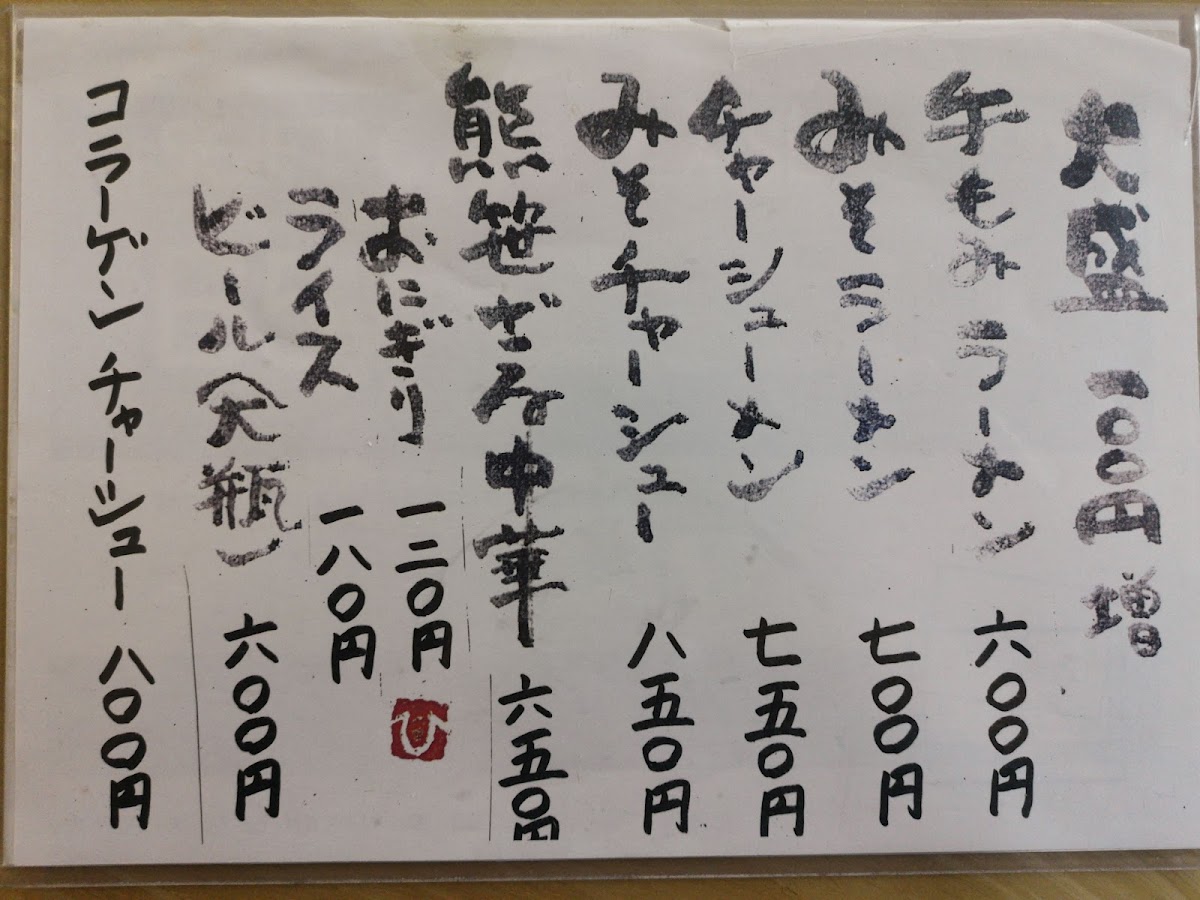 大盛 100円増
手もみラーメン 六〇〇円
みそラーメン 七〇〇円
チャーシューメン 七五〇円
みそチャーシュー 八五〇円
熊笹ざる中華 六五〇円
おにぎり 一二〇円
ライス 一八〇円
ビール(大瓶) 六〇〇円
コラーゲンチャーシュー 八〇〇円